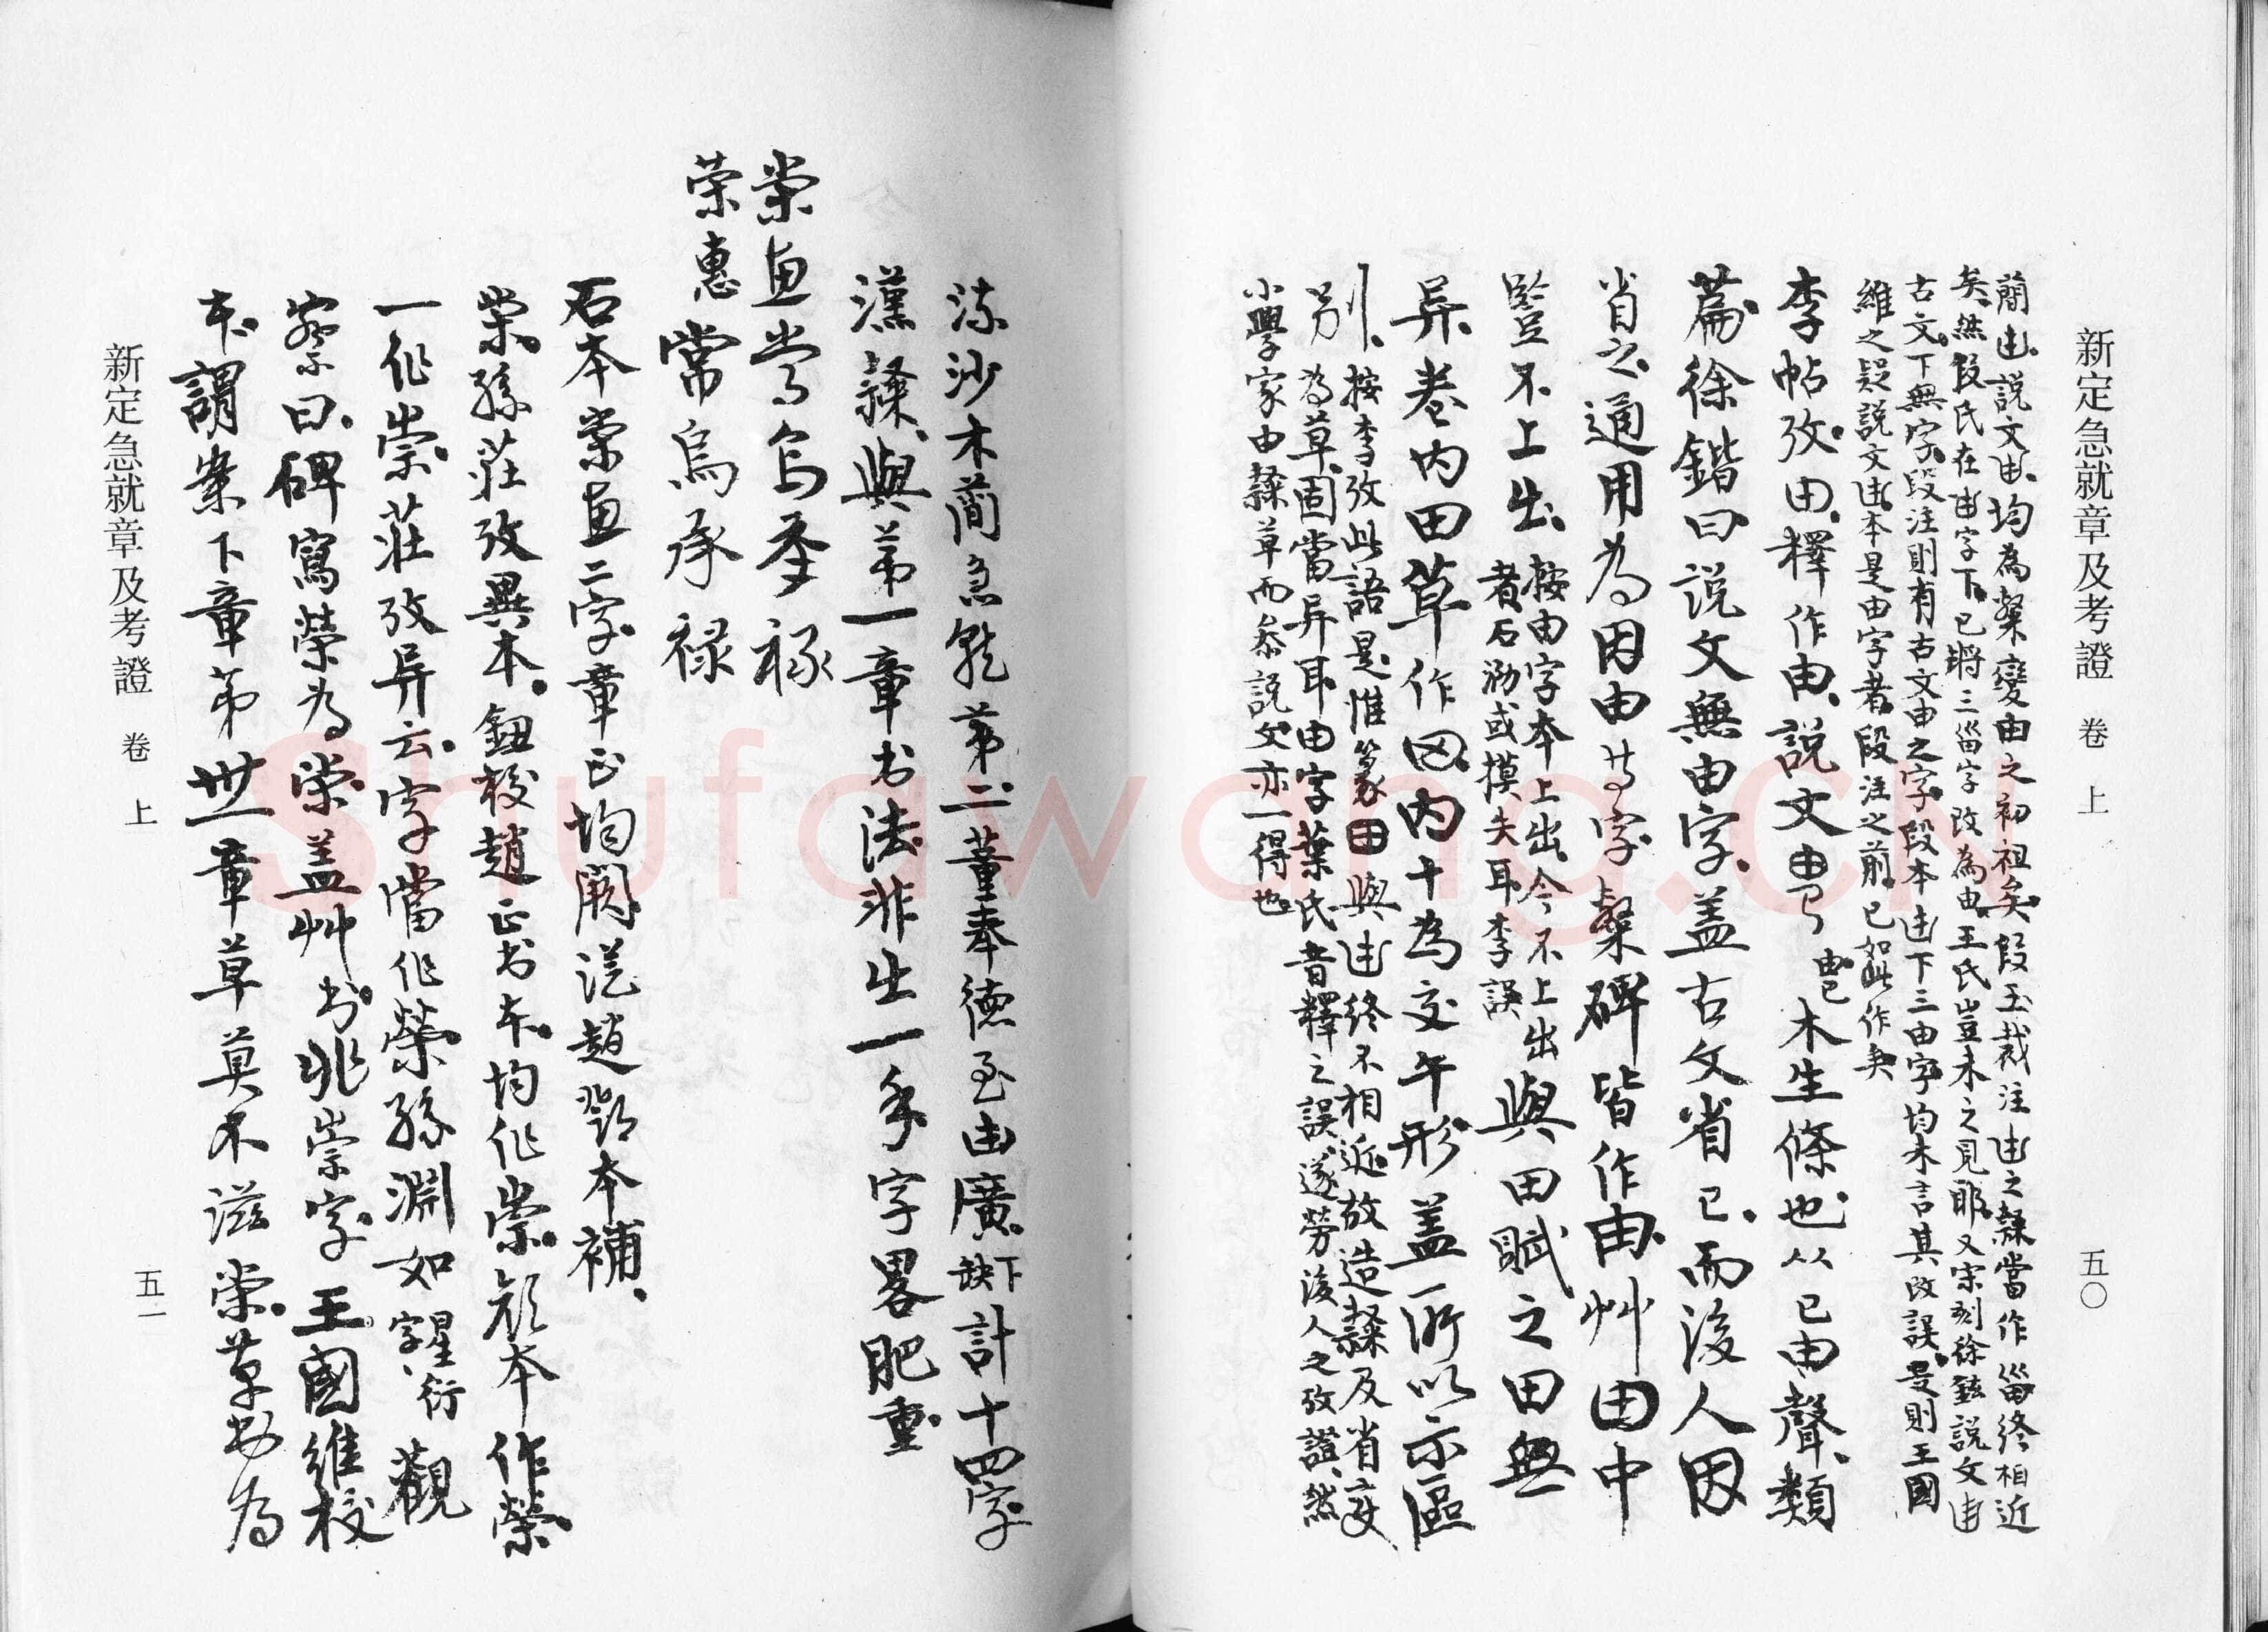 新定急就章及考證 卷上 五〇
簡甶、說文甶、均為檗變由之初祖矣、段玉裁注甶之隸當作甾終相近
矣、然段氏在甶字下、已將三甾字改為由、王氏豈未之見耶、又宋刻徐鉉說文甶
古文、下無字、段注則有古文由之字、段本甶下三由字均未言其改誤、是則王國
維之疑說文甶、本是由字者、段注之前、已如此作矣
李帖攷由、釋作由、說文 木生條也、从已由聲、類
篇徐鍇曰說文無由字、蓋古文省已、而後人因
省之、通用為因由等字檗碑皆作由、艸田中
豎不上出、按由字本上出、今不上出
者石泐或摸失耳李誤 與田賦之田無
异、卷内田草作 内十為交午形蓋所以示區
別、按李攷此語是、惟篆由與甶終不相近、故造隸及省變
為草、固當异耳由字葉氏音釋之誤、遂勞後人之攷證、然
小學家由隸草而參說文亦一得也
流沙木簡急就第二董奉德至由廣、下缺計十四字
漢隸、與第一章书法非出一手字畧肥重
榮惠常烏承祿
榮惠常烏承祿
石本榮惠二字、章正均闕從趙鄧本補、
榮、孫莊攷異本、鈕校趙正书本、均作崇、顏本作榮
一作崇、莊攷异云、字當作榮孫淵如字星衍觀
察曰、碑寫榮為榮蓋艸书、非崇字、王國維校
本、謂案下章第卅一章草莫不滋榮、草书為
新定急就章及考證 卷上 五一
Shufawang.CN